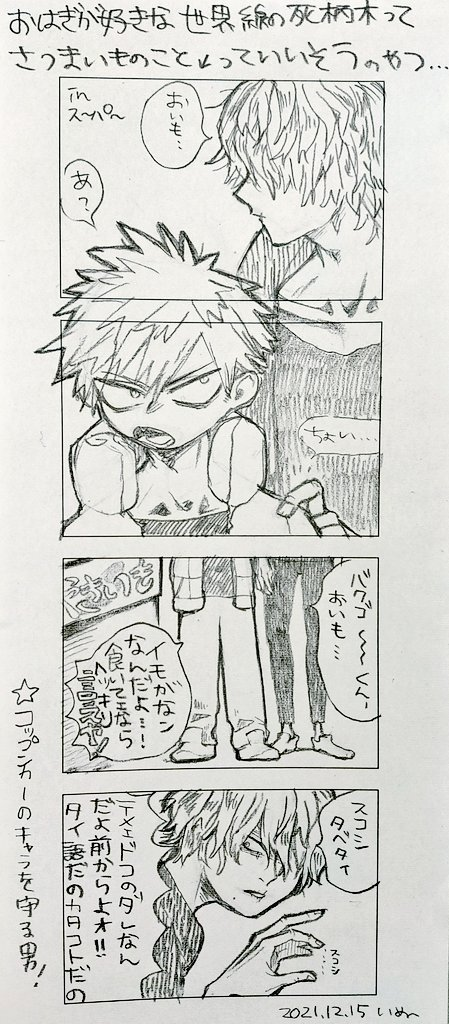 おはぎが好きな世界線の死柄木って
さつまいものこと↙っていいそうのやつ…
in
スーパー
おいも…
あ?
ちょい…
バクゴ〜〜くんー
おいも…
イモがなン
なんだよ…!
食いてェなら
ハッキリ
言えスヤ!
スコシ
タベタイ
テメェドコのダレなん
だよ前からよォ!!
タイ語だのカタコトだの
スコシ
☆コップンカーのキャラを守る男!
2021.12.15 いぬ